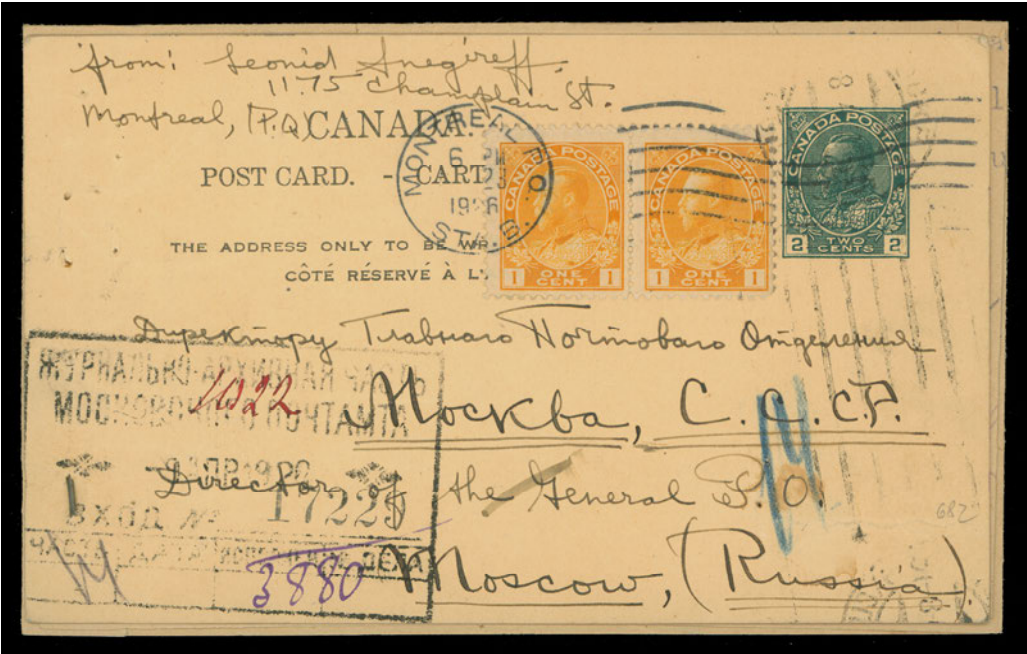 from: Leonid Snegireff.
1175 Champlain St.
Montreal, (P.Q)
CANADA.
POST CARD. - CART
THE ADDRESS ONLY TO BE WR
CÔTÉ RÉSERVÉ À L'
MONTREAL
6 PM
1926
STA. B.
CANADA POSTAGE
1 ONE CENT 1
CANADA POSTAGE
1 ONE CENT 1
CANADA POSTAGE
2 TWO CENTS 2
Директору Главнаго Почтоваго Отделения
Москва, С.С.С.Р.
Director of the General P.O.
Moscow, (Russia).
МОСКОВСКОГО ПОЧТАМТА
ВХОД №
17223
ДЕЛА
1022
3880
682